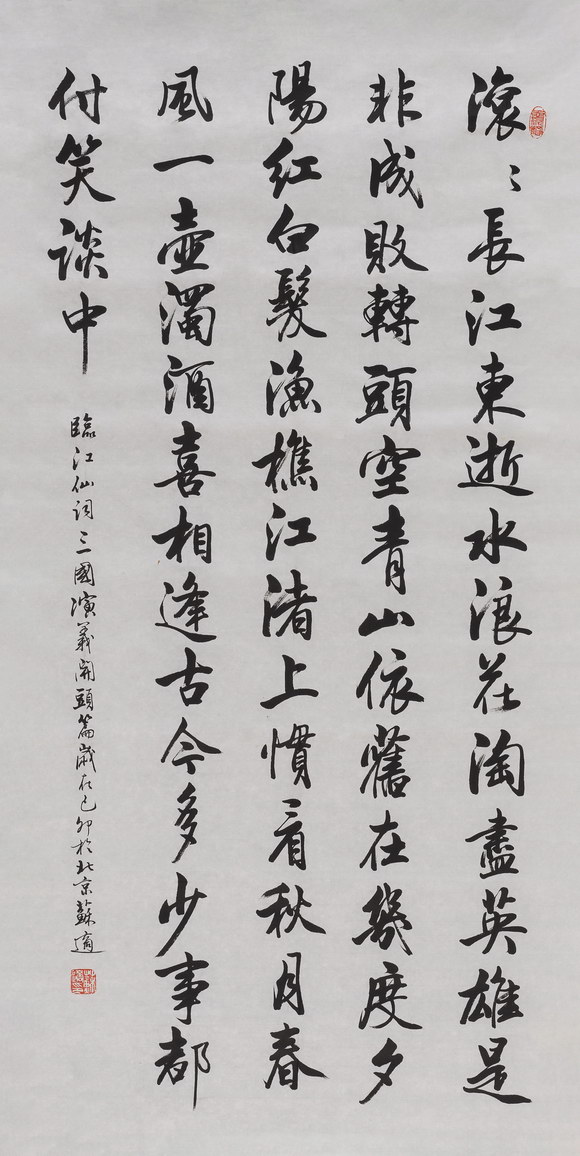 滾〻長江東逝水浪花淘盡英雄是
非成敗轉頭空青山依舊在幾度夕
陽紅白髮漁樵江渚上慣看秋月春
風一壺濁酒喜相逢古今多少事都
付笑談中
臨江仙詞三國演義開頭篇歲在己卯於北京蘇適